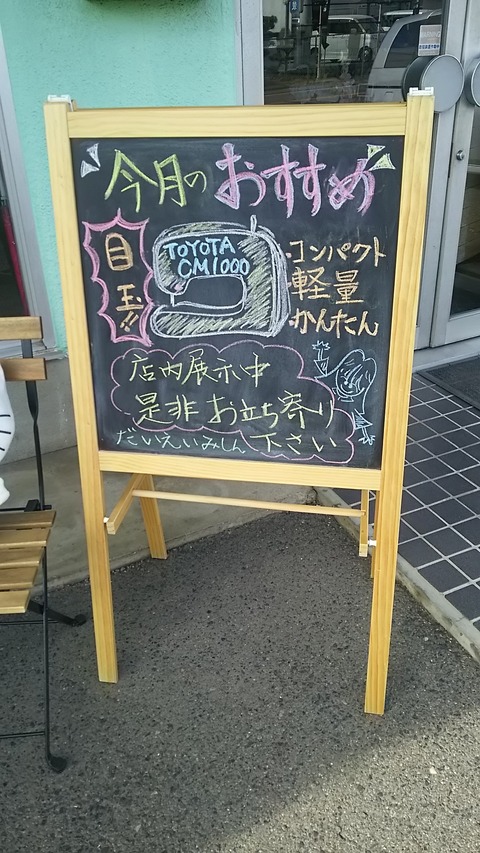 今月のおすすめ
目玉!!
TOYOTA
CM1000
・コンパクト
・軽量
・かんたん
店内展示中
是非お立ち寄り
下さい
だいえいみしん
WARNING